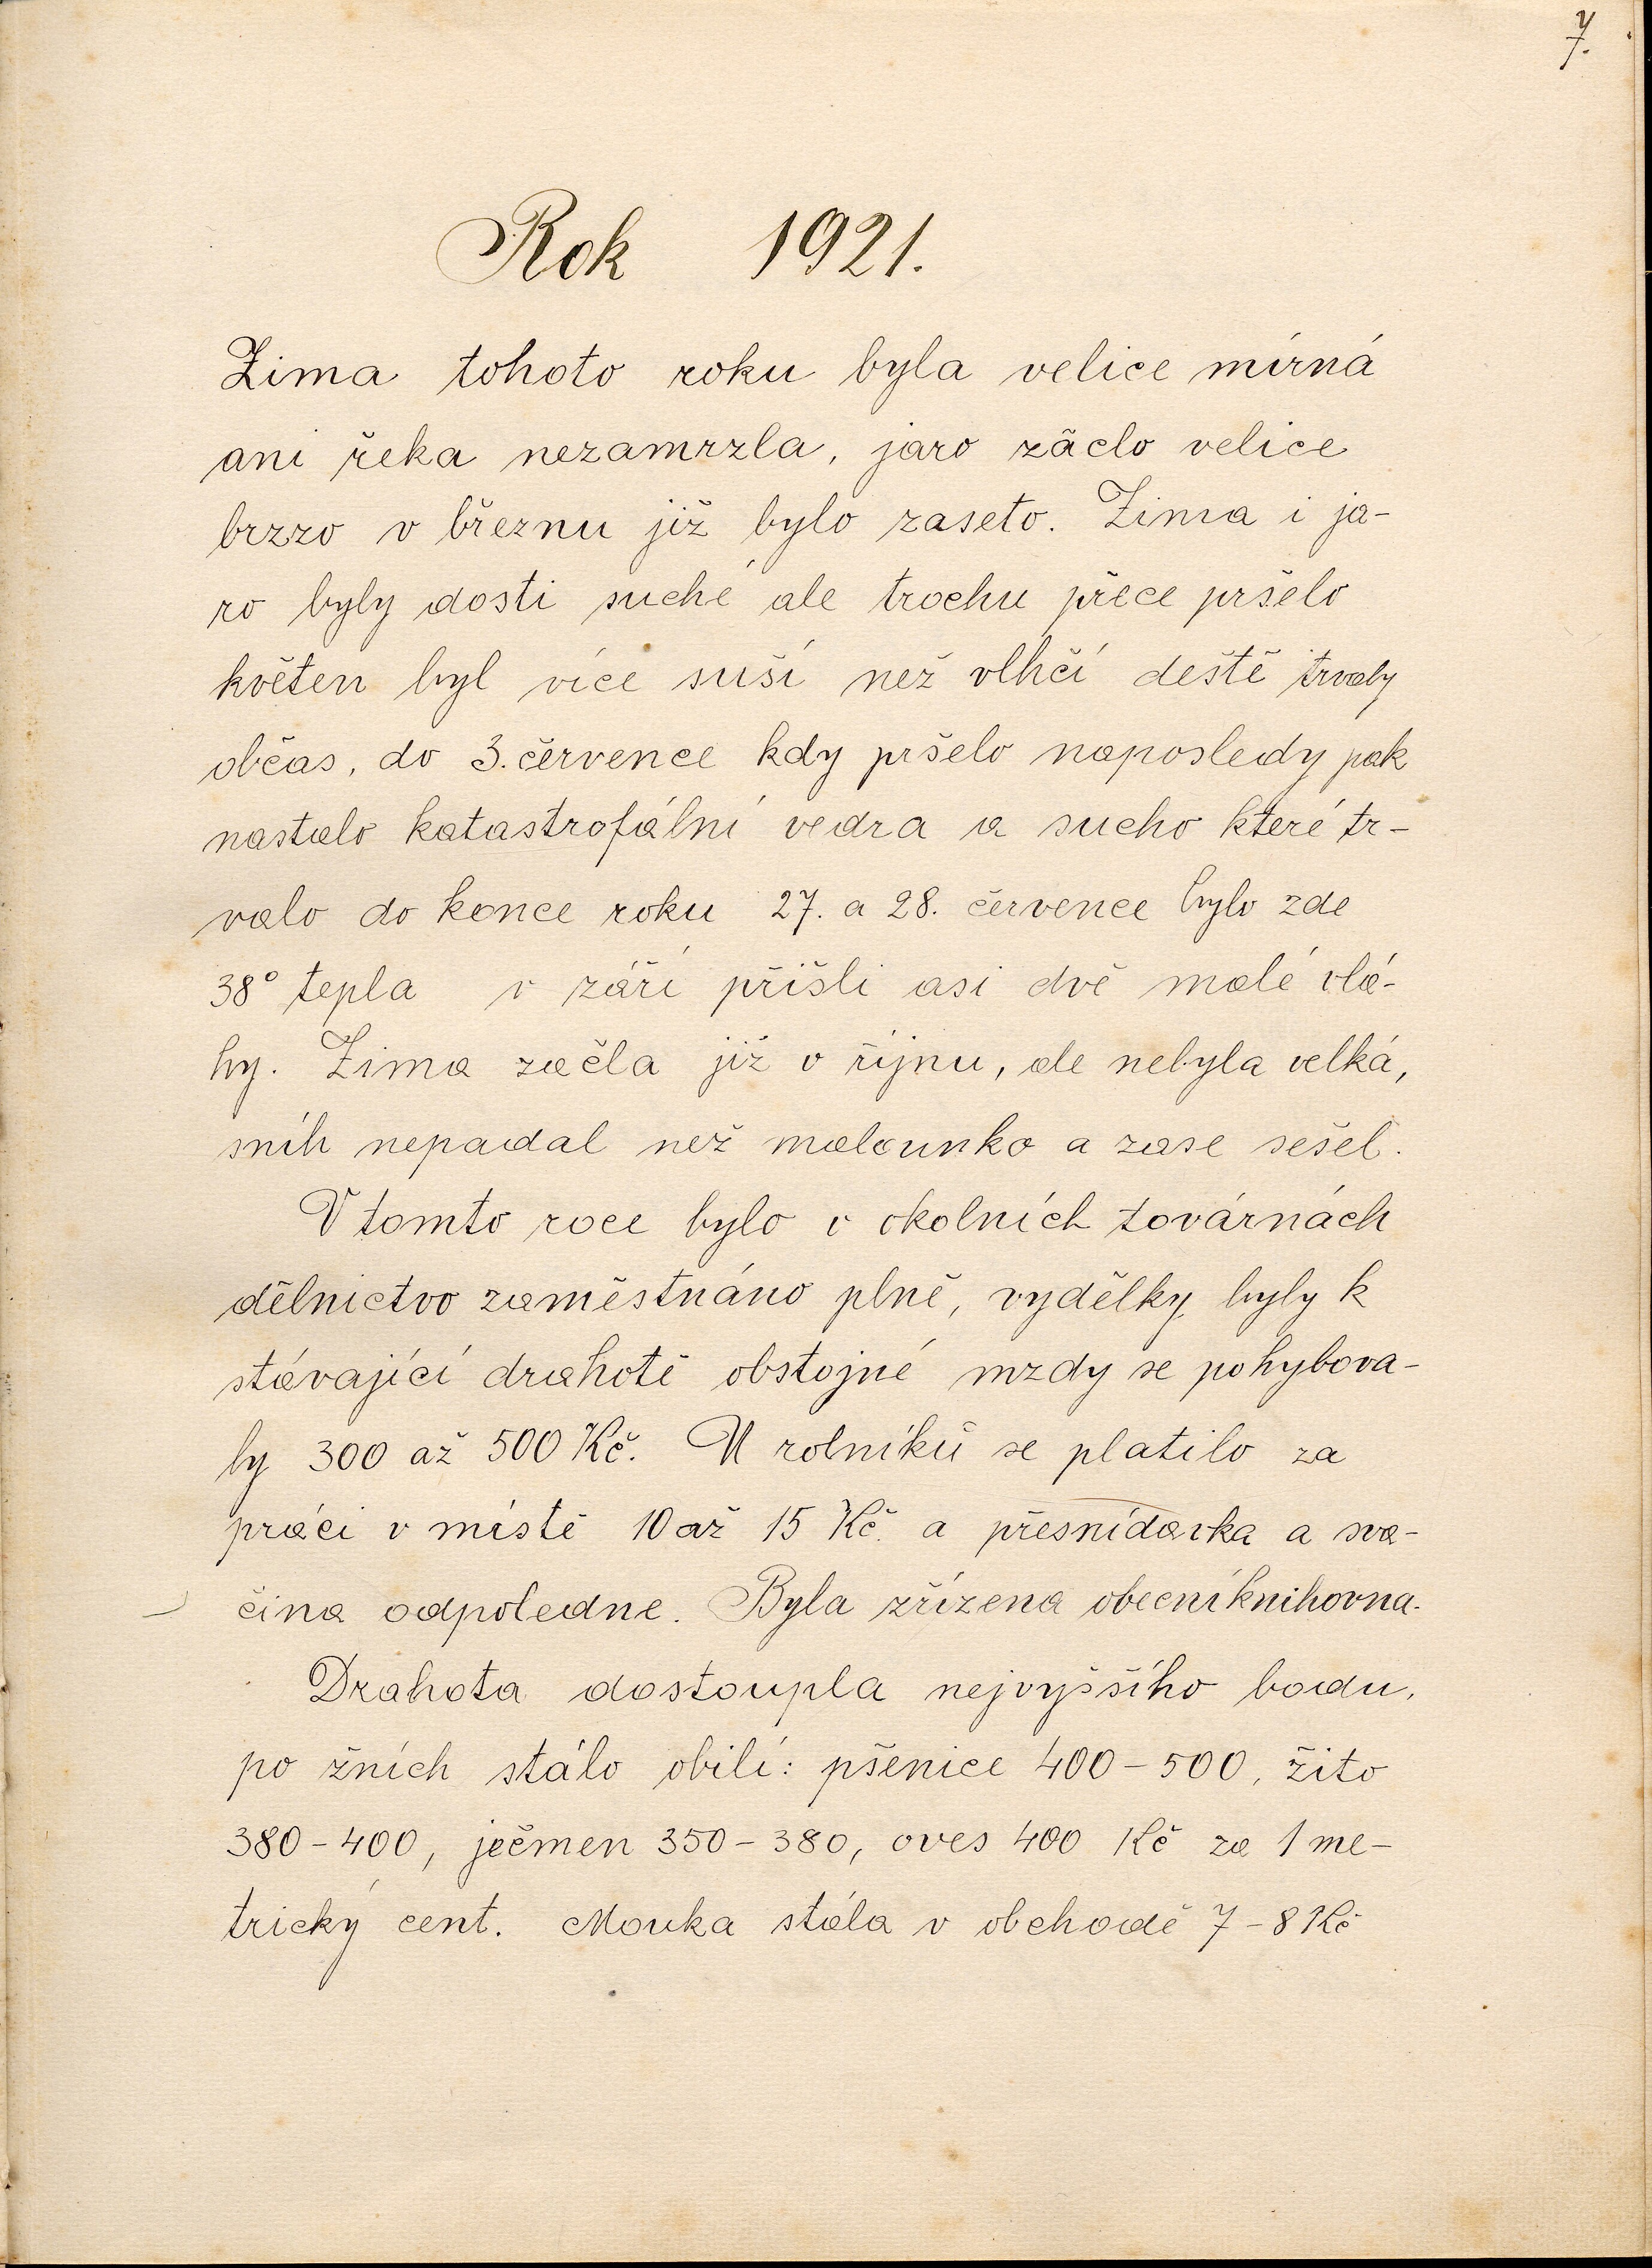 7.
Rok 1921.
Zima tohoto roku byla velice mírná
ani řeka nezamrzla, jaro záclo velice
brzzo v březnu již bylo zaseto. Zima i ja-
ro byly dosti suché ale trochu přece pršelo
květen byl více suší než vlhčí deště trvaly
občas, do 3. července kdy pršelo naposledy pak
nastalo katastrofální vedra a sucho které tr-
valo do konce roku 27. a 28. července bylo zde
38° tepla v září přišli asi dvě malé vlá-
hy. Zima začla již v říjnu, ale nebyla velká,
sníh nepadal než malounko a zase sešel.
V tomto roce bylo v okolních továrnách
dělnictvo zaměstnáno plně, vydělky byly k
stávající drahotě obstojné mzdy se pohybova-
ly 300 až 500 Kč. U rolníků se platilo za
práci v místě 10 až 15 Kč. a přesnídavka a sva-
čina odpoledne. Byla zřízena obecní knihovna.
Drahota dostoupla nejvyššího bodu,
po žních stálo obilí: pšenice 400-500, žito
380-400, ječmen 350-380, oves 400 Kč za 1 me-
trický cent. Mouka stála v obchodě 7-8 Kč